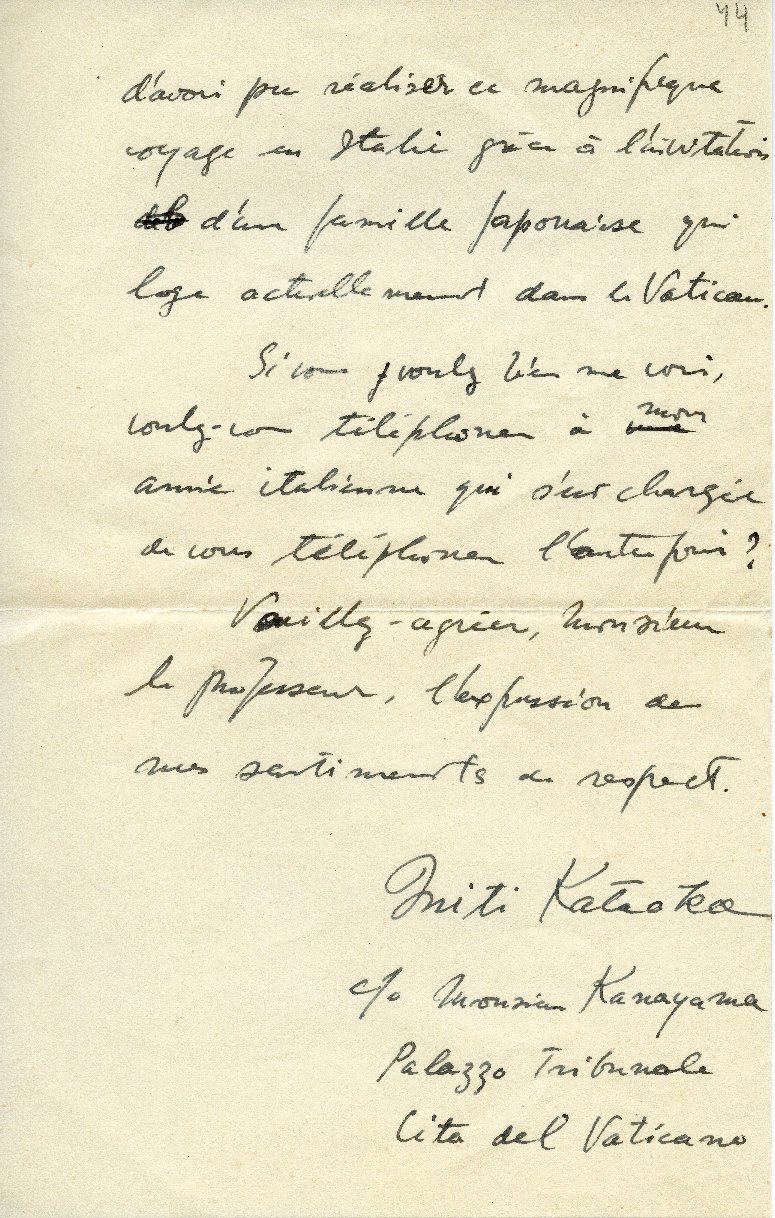 44
d'avoir pu réaliser ce magnifique
voyage en Italie grâce à l'invitation
d'une famille japonaise qui
loge actuellement dans le Vatican.
Si vous voulez bien me voir,
voulez-vous téléphoner à mon
amie italienne qui s'est chargée
de vous téléphoner l'autre fois?
Veuillez-agréer, Monsieur
le professeur, l'expression de
mes sentiments de respect.
Miti Kataoka
c/o Monsieur Kanayama
Palazzo Tribunale
Cita del Vaticano